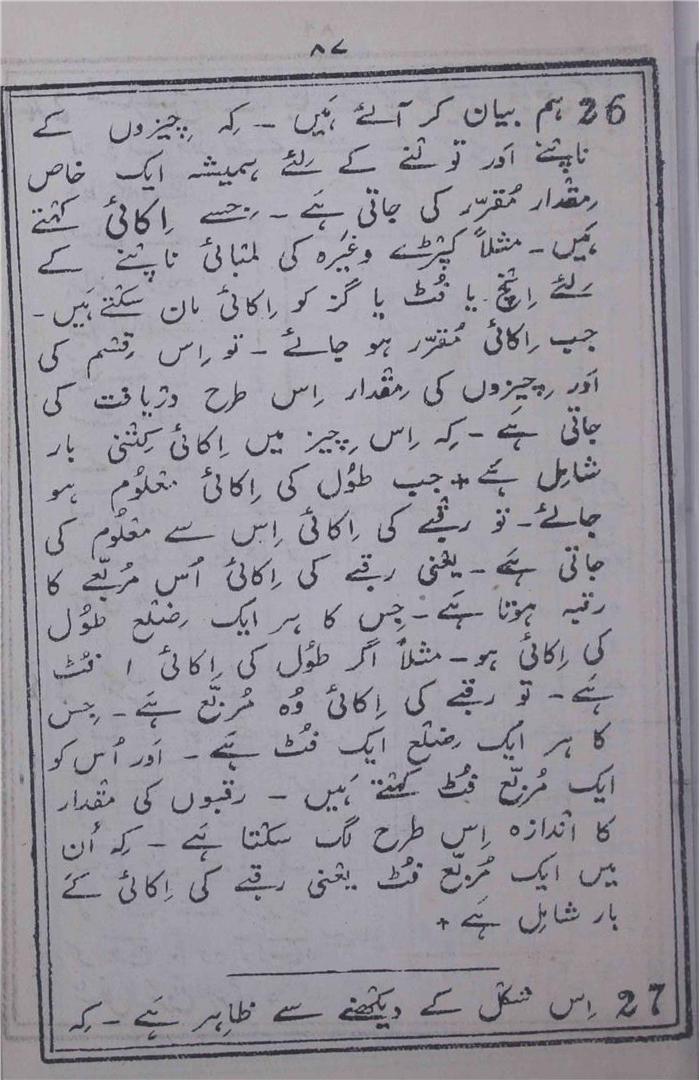 ۸۷
26 ہم بیان کر آئے ہَیں ۔ کِہ چِیزوں کے
ناپنْے اَور تولْنے کے لِئے ہمیشہ ایک خاص
مِقْدار مُقرّر کی جاتی ہَے ۔ جِسے اِکائی کہْتے
ہَیں ۔ مثلاً کپْڑے وغَیرہ کی لمْبائی ناپنْے کے
لِئے اِنْچ یا فُٹ یا گز کو اِکائی مان سکْتے ہَیں ۔
جب اِکائی مُقرّر ہو جائے ۔ تو اِس قِسْم کی
اَور چِیزوں کی مِقْدار اِس طرح دریافت کی
جاتی ہَے ۔ کِہ اِس چِیز میں اِکائی کِتْنی بار
شامِل ہَے + جب طُول کی اِکائی معْلُوم ہو
جائے ۔ تو رقْبے کی اِکائی اِس سے معْلُوم کی
جاتی ہَے ۔ یعْنی رقبے کی اِکائی اُس مُربّعے کا
رقبہ ہوتا ہَے ۔ جِس کا ہر ایک ضِلع طُول
کی اِکائی ہو ۔ مثلاً اگر طُول کی اِکائی ۱ فُٹ
ہَے ۔ تو رقبے کی اِکائی وُہ مُربّع ہَے ۔ جِس
کا ہر ایک ضِلْع ایک فُٹ ہَے ۔ اَور اُس کو
ایک مُربّع فُٹ کہْتے ہَیں ۔ رقبوں کی مقْدار
کا انْدازہ اِس طرح لگ سکْتا ہَے ۔ کِہ اُن
میں ایک مُربّع فُٹ یعْنی رقبے کی اِکائی کَے
بار شامِل ہَے +
27 اِس شکْل کے دیکھْنے سے ظاہِر ہَے ۔ کِہ